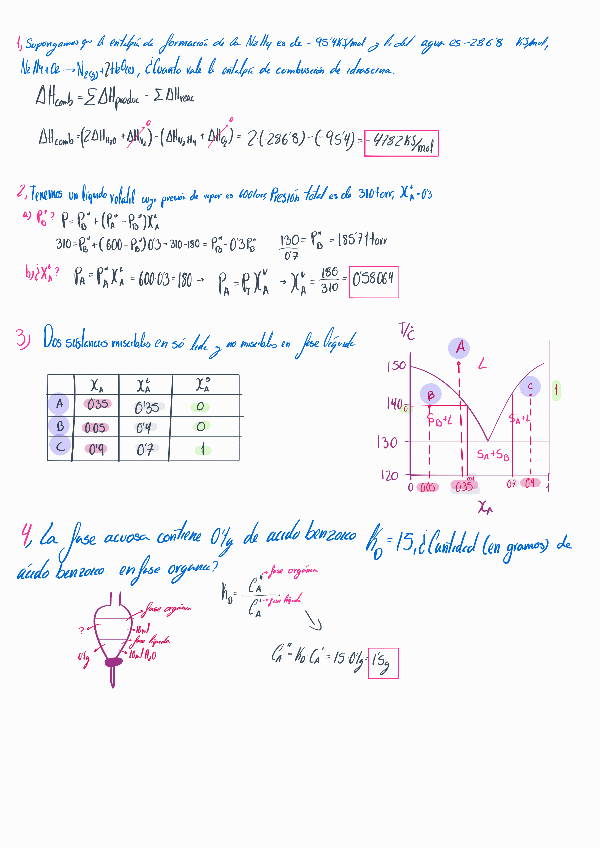 1, Supongamos que la entalpía de formación de la N2H4 es de -95'4KJ/mol y la del agua es -286'8 KJ/mol,
N2H4+O2 → N2(g)+2H2O(l), ¿Cuanto vale la entalpía de combustión de idracina.
ΔHcomb = ΣΔHproduc - ΣΔHreac
ΔHcomb = (2ΔH H2O + ΔH N2) - (ΔH N2H4 + ΔH O2) = 2·(286'8) - (-95'4) = -478'2 KJ/mol
0 0
2, Tenemos un líquido volatil cuya presión de vapor es 600torr, Presión total es de 310torr, X_A^L = 0'3
a) P_B^*? P = P_B^* + (P_A^* - P_B^*)X_A^L
310 = P_B^* + (600 - P_B^*)0'3 → 310-180 = P_B^* - 0'3P_B^* 130/0'7 = P_B^* = 185'71torr
b) ¿X_A^V? P_A = P_A^* X_A^L = 600·0'3 = 180 → P_A = P_T X_A^V → X_A^V = 180/310 = 0'58064
3) Dos sustancias miscibles en só lido y no miscibles en fase líquida
X_A X_A^L X_A^S
A 0'35 0'35 0
B 0'05 0'4 0
C 0'9 0'7 1
T/c
150
140
130
120
A
L
B
C
1
S_B+L
S_A+L
S_A+S_B
0 0'05 0'35 0'7 0'9 1
X_A
4, La fase acuosa contiene 0'1g de acido benzoico K_D = 15, ¿Cantidad (en gramos) de
ácido benzoico en fase organica?
K_D = C_A''/C_A'
fase orgánica
fase líquida
C_A'' = K_D C_A' = 15·0'1g = 1'5g
fase orgánica
?
10ml
fase líquida
0'1g
10ml H2O